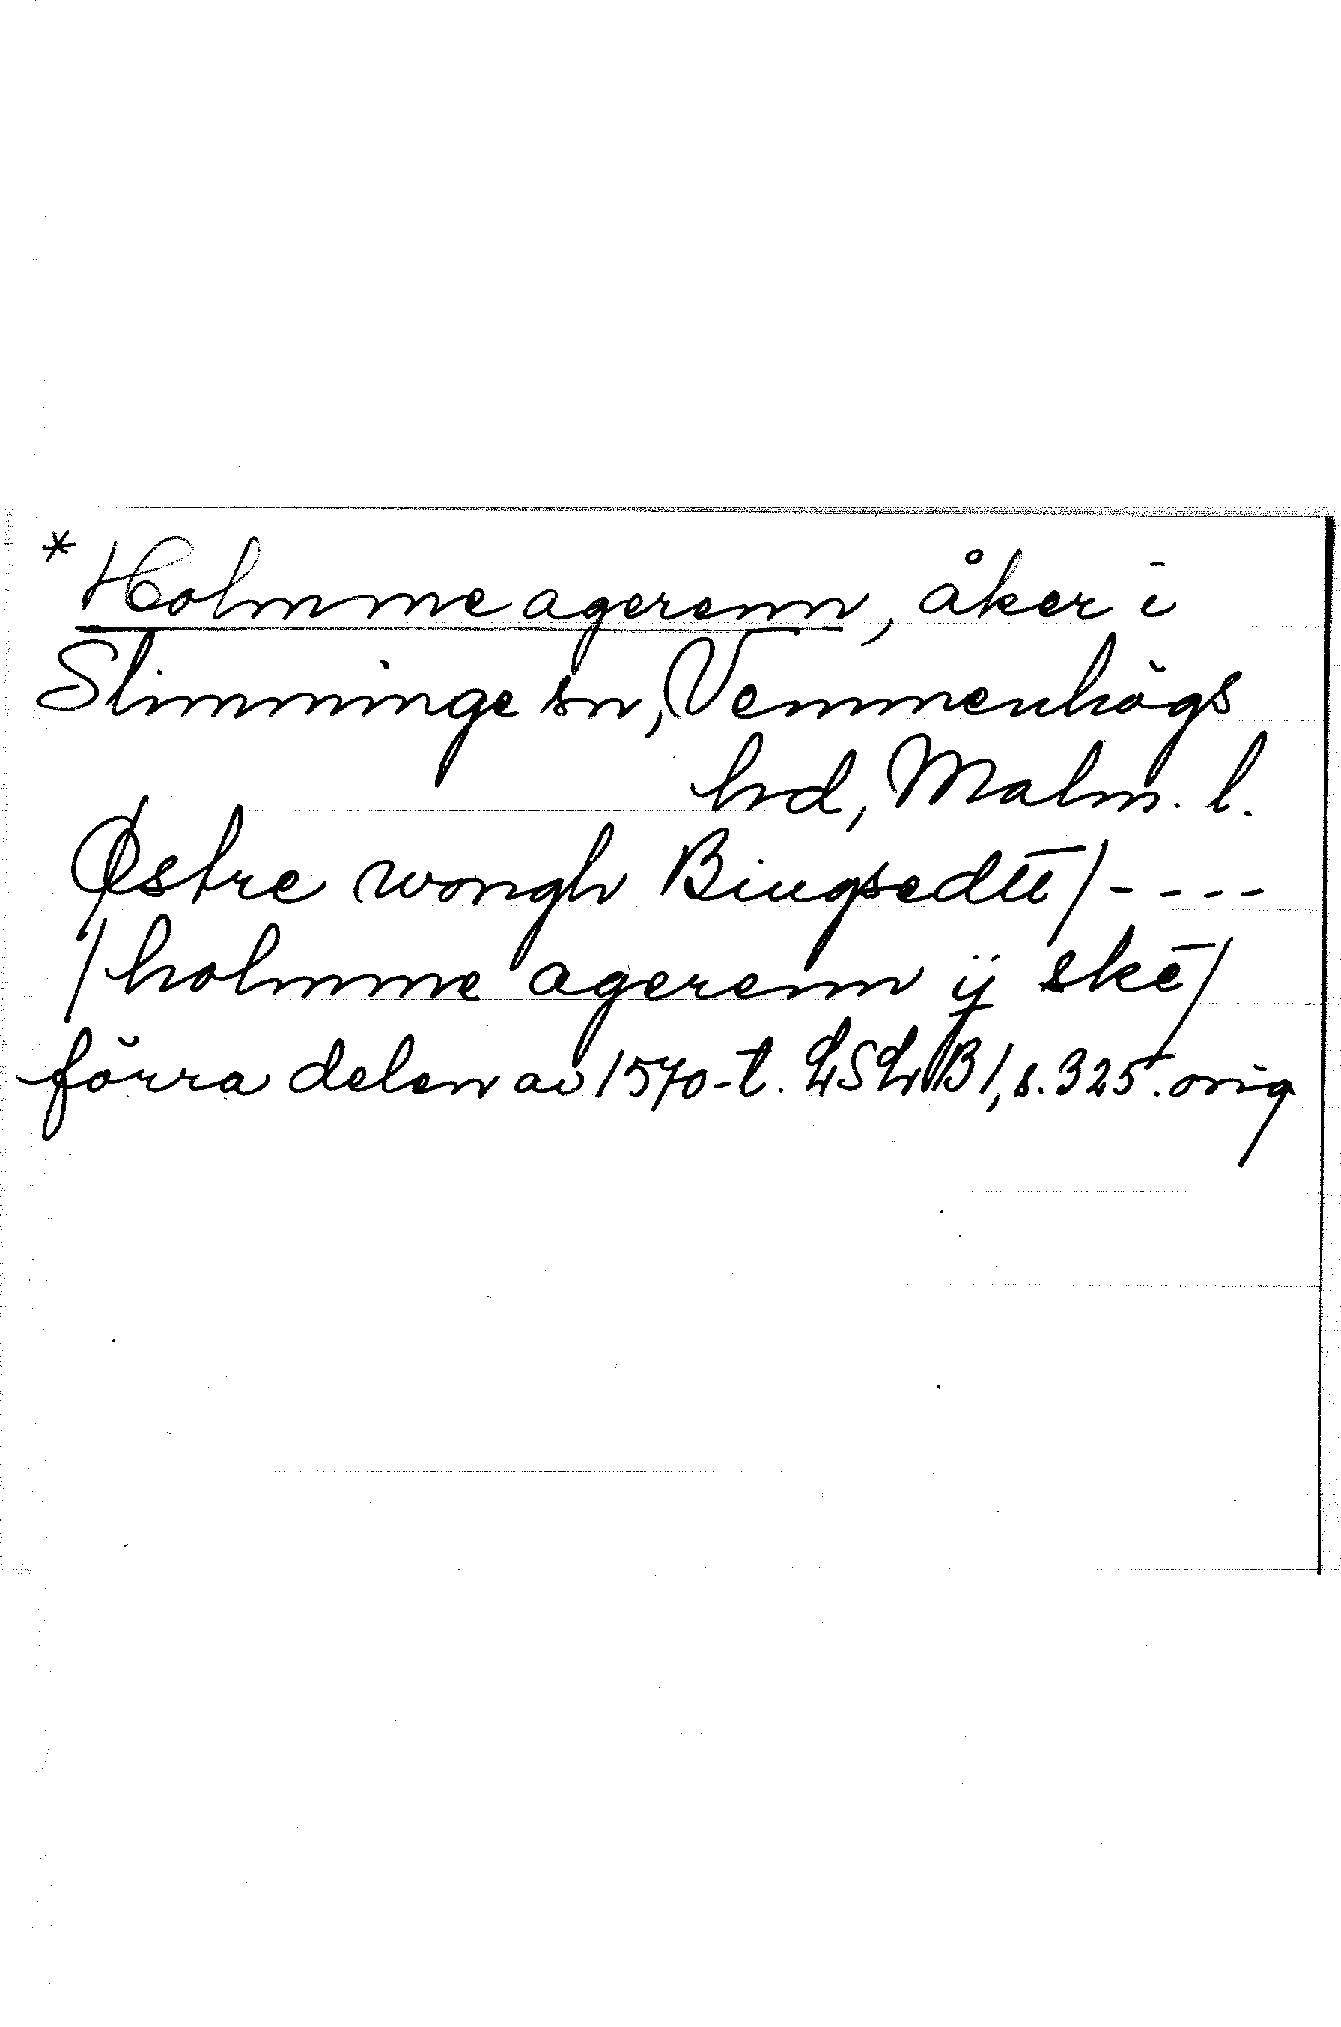 * Holmme agerenn, åker i
Slimminge sn, Vemmenhögs
hrd, Malm. l.
Østre wongh Biugsedtt̄ /----
/holmme agerenn ij skē/
förra delen av 1570-t. LSLB1, s. 325. orig